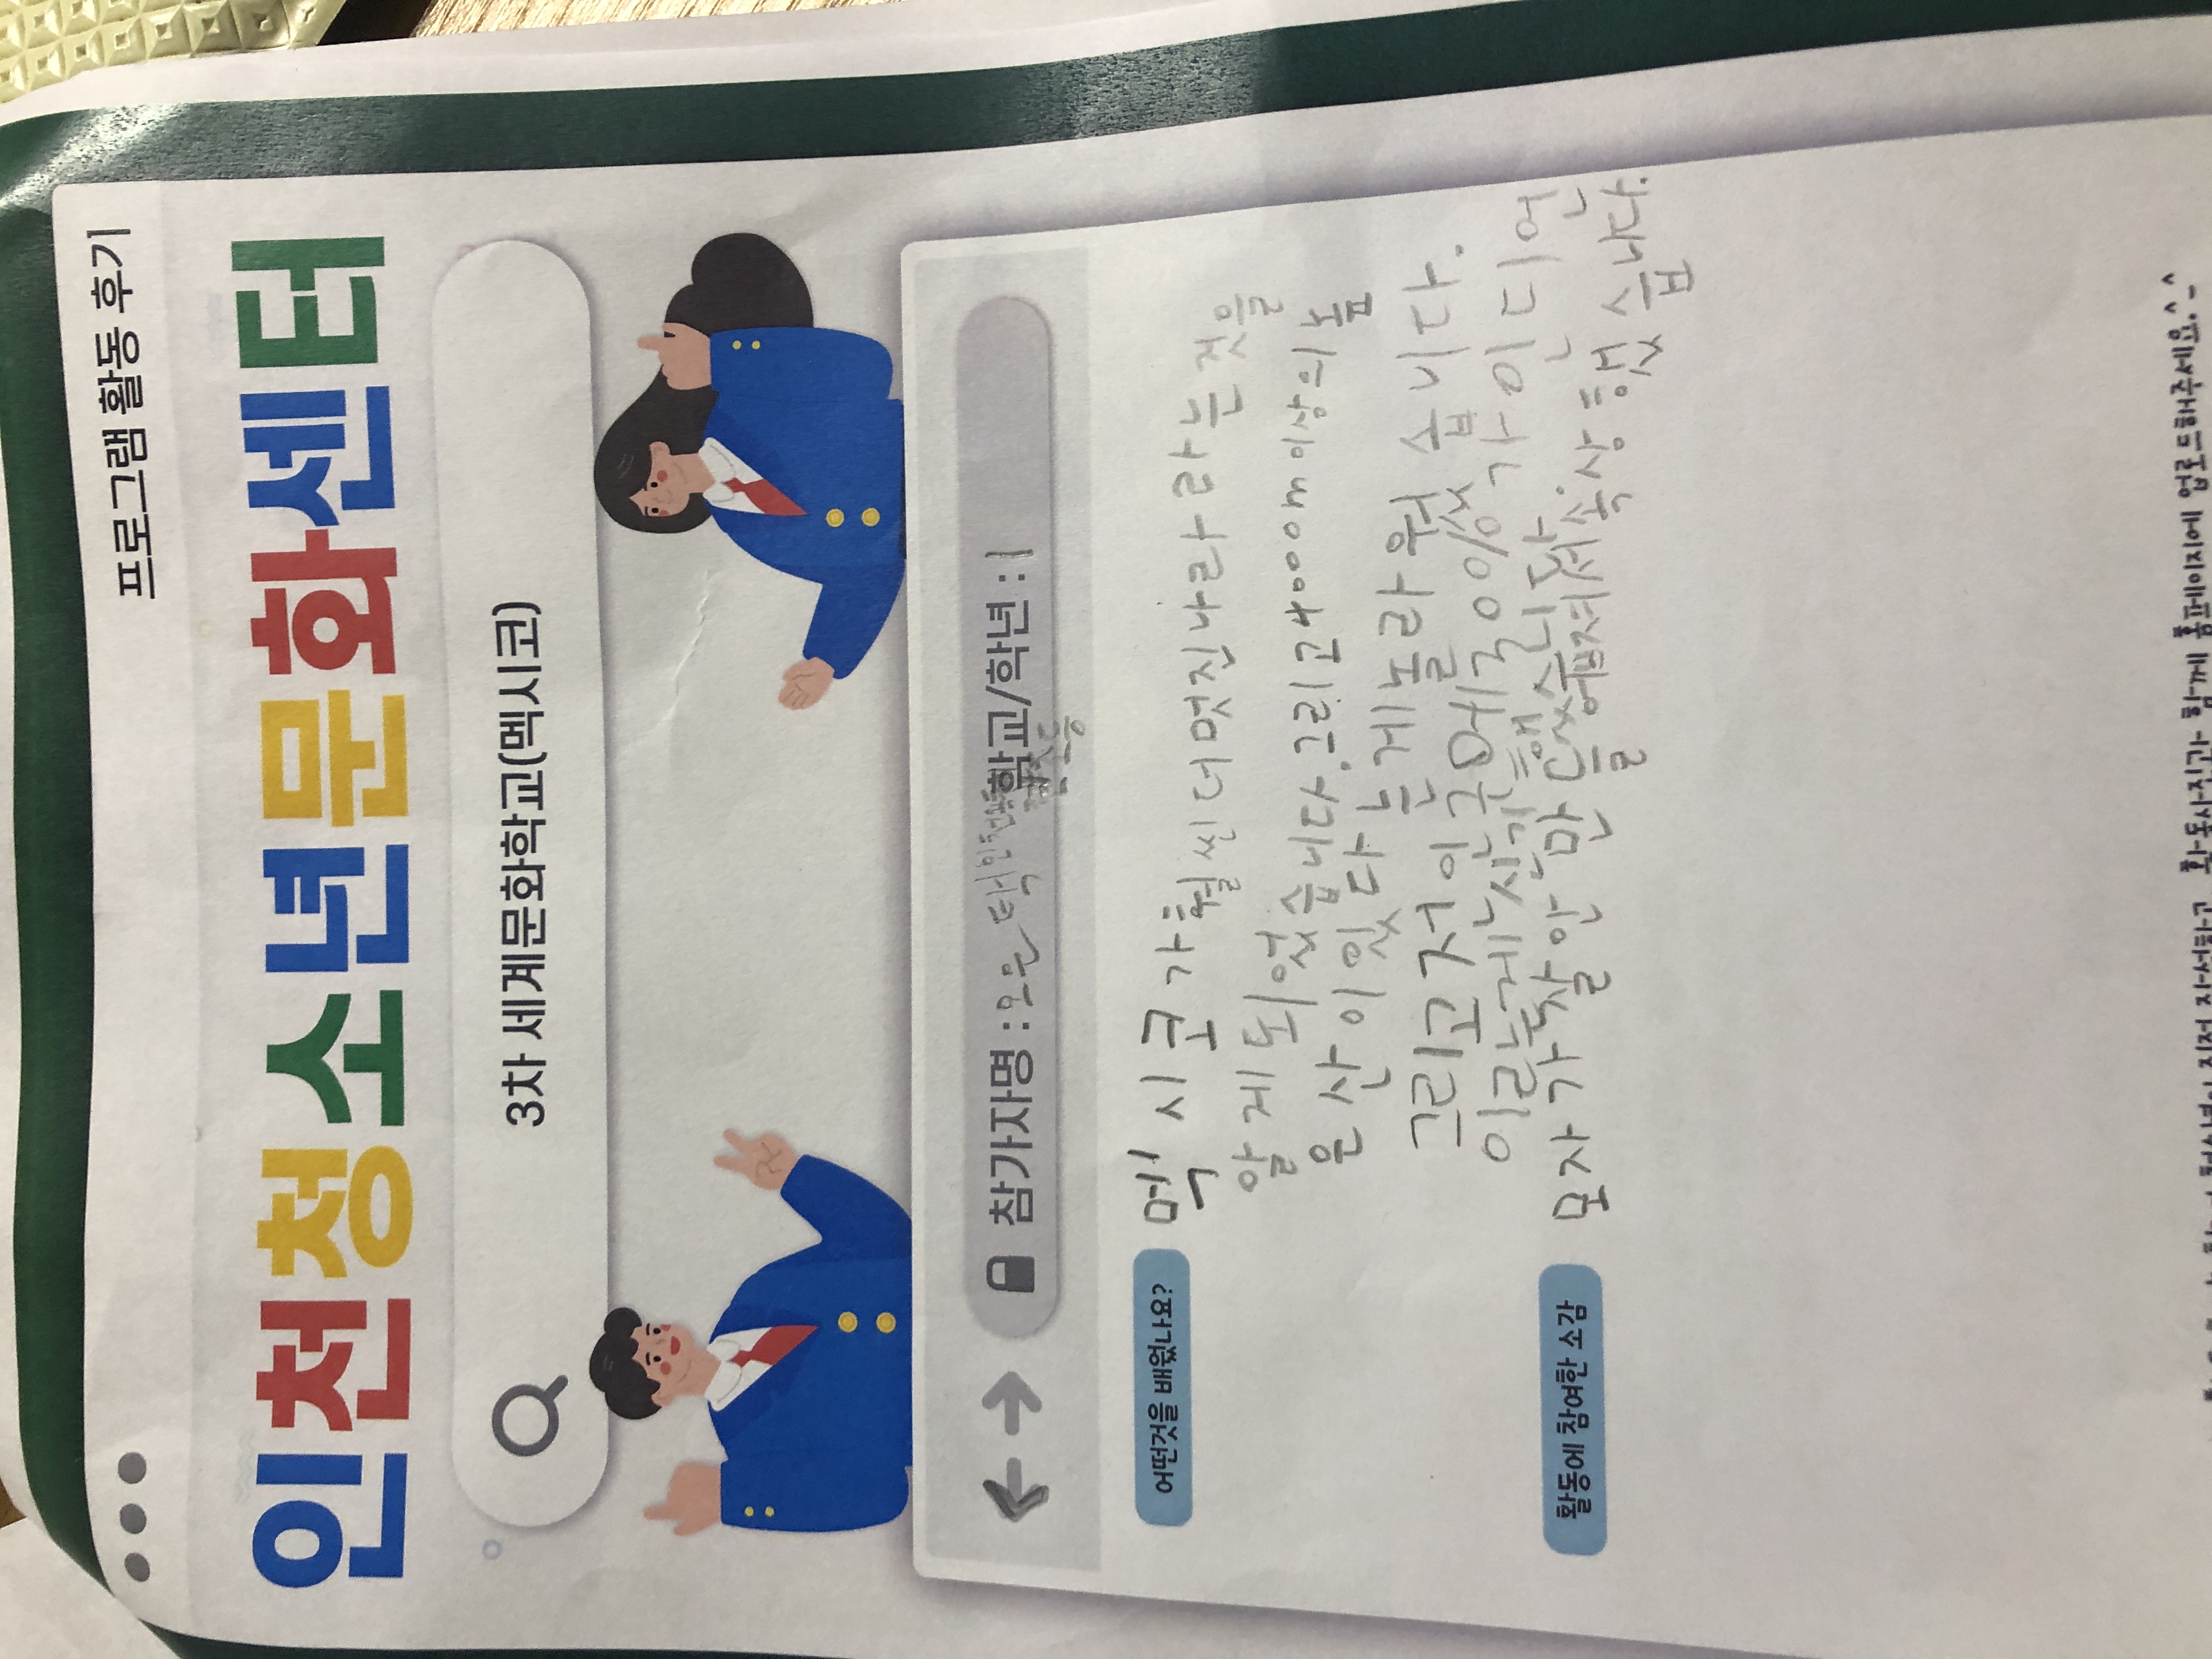 프로그램 활동 후기
인천청소년문화센터
3차 세계문화학교(멕시코)
참가자명 : 오은택 학교/학년 : 1
어떤것을 배웠나요?
멕시코가 훨씬 더 멋진 나라라는 것을
알게 되었습니다. 그리고 4000m 이상의 높
은 산이 있다는게 놀라웠습니다.
그리고 전인구 머국 90%가 인디언
이라는게 신기했습니다
활동에 참여한 소감
모자가 잘 안 만들어져서 속상했습니다.
홈페이지에 업로드해주세요.^-^